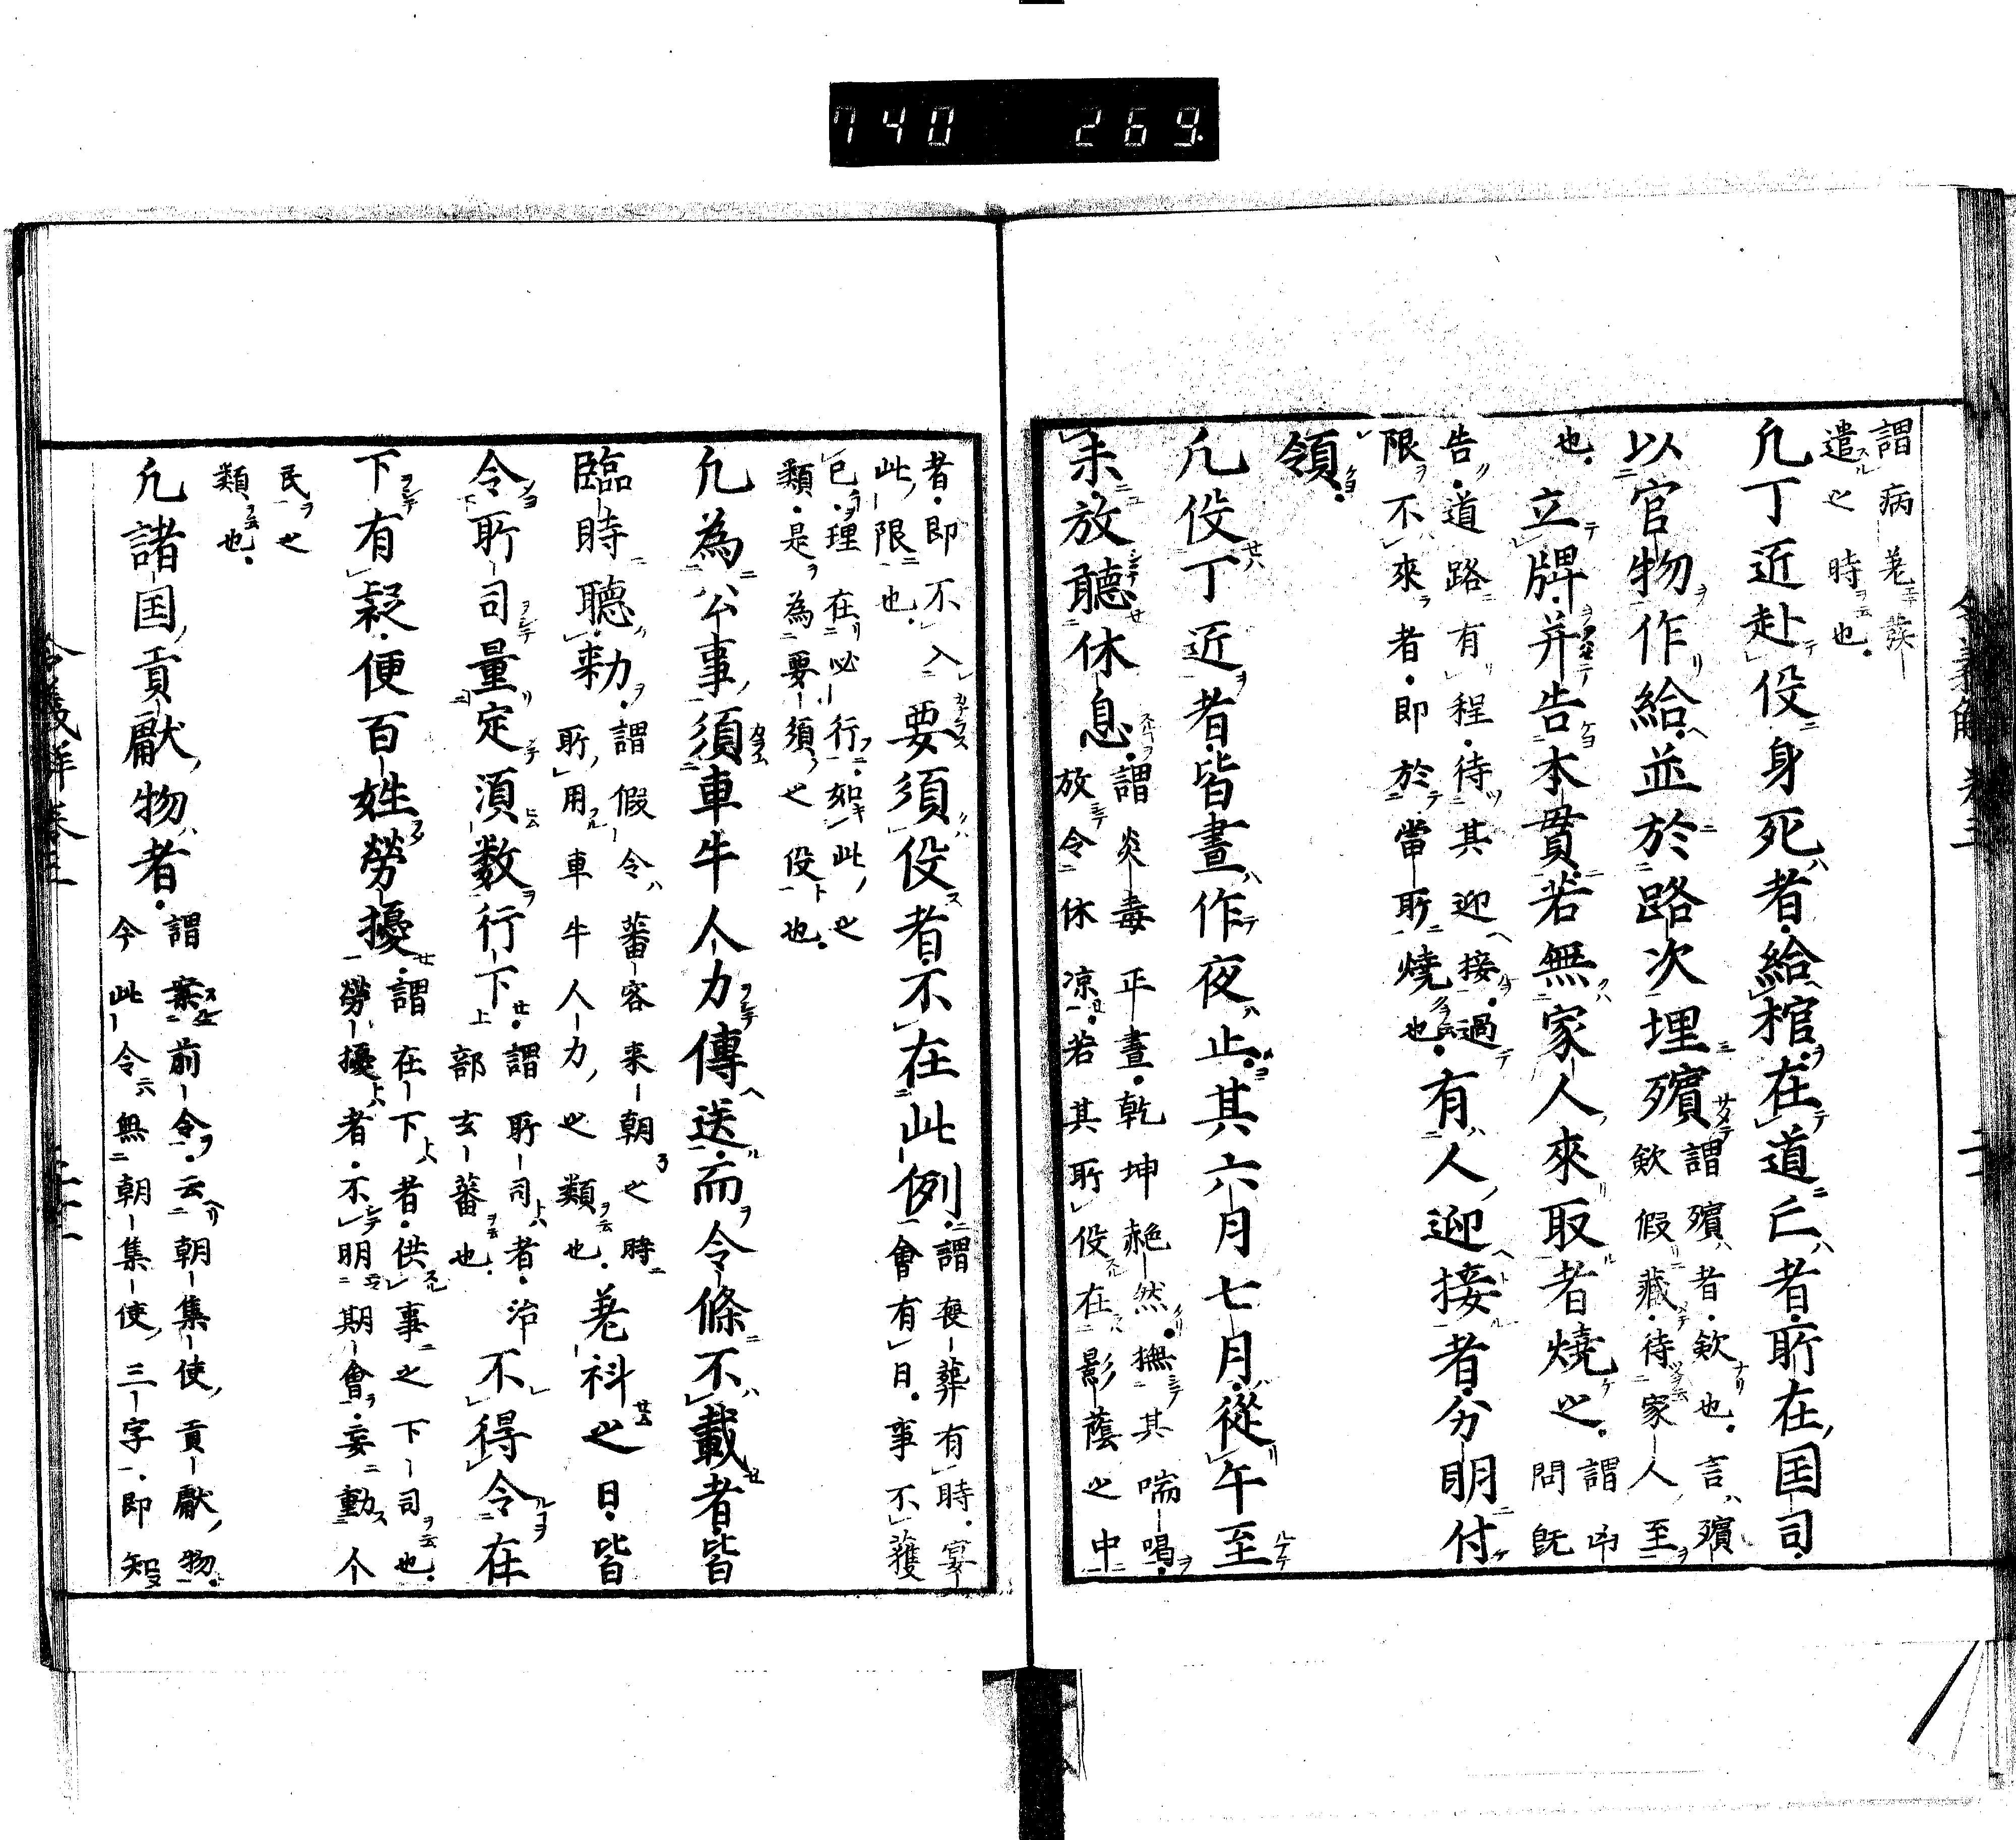 740 269
謂病差發
遣之時也
凡丁近赴役身死者給棺在道亡者所在国司
以官物作給並於路次埋殯謂殯者欸也言殯
欸假藏待家人至
也立牌并告本貫若無家人來取者燒之謂所
問既
告道路有程待其迎接過
限不來者即於當所燒也有人迎接者分明付
領
凡役丁近者皆晝作夜止其六月七月從午至
未放聽休息謂炎毒正晝乾坤赩然撫其喘喝
放令休凉若其所役在影蔭之中
者即不入要須役者不在此例謂喪葬有時宴
會有日事不獲
此限也
已理在必行如此之
類是為要須之役也
凡為公事須車牛人力傳送而令條不載者皆
臨時聽勅謂假令蕃客来朝之時
所用車牛人力之類也差科之日皆
令所司量定須数行下謂所司者治
部玄蕃也不得令在
下有疑便百姓勞擾謂在下者供事之下司也
勞擾者不明期會妄動个
民之
類也
凡諸国貢獻物者謂案前令云朝集使貢獻物
今此令無朝集使三字即知
令義解卷三